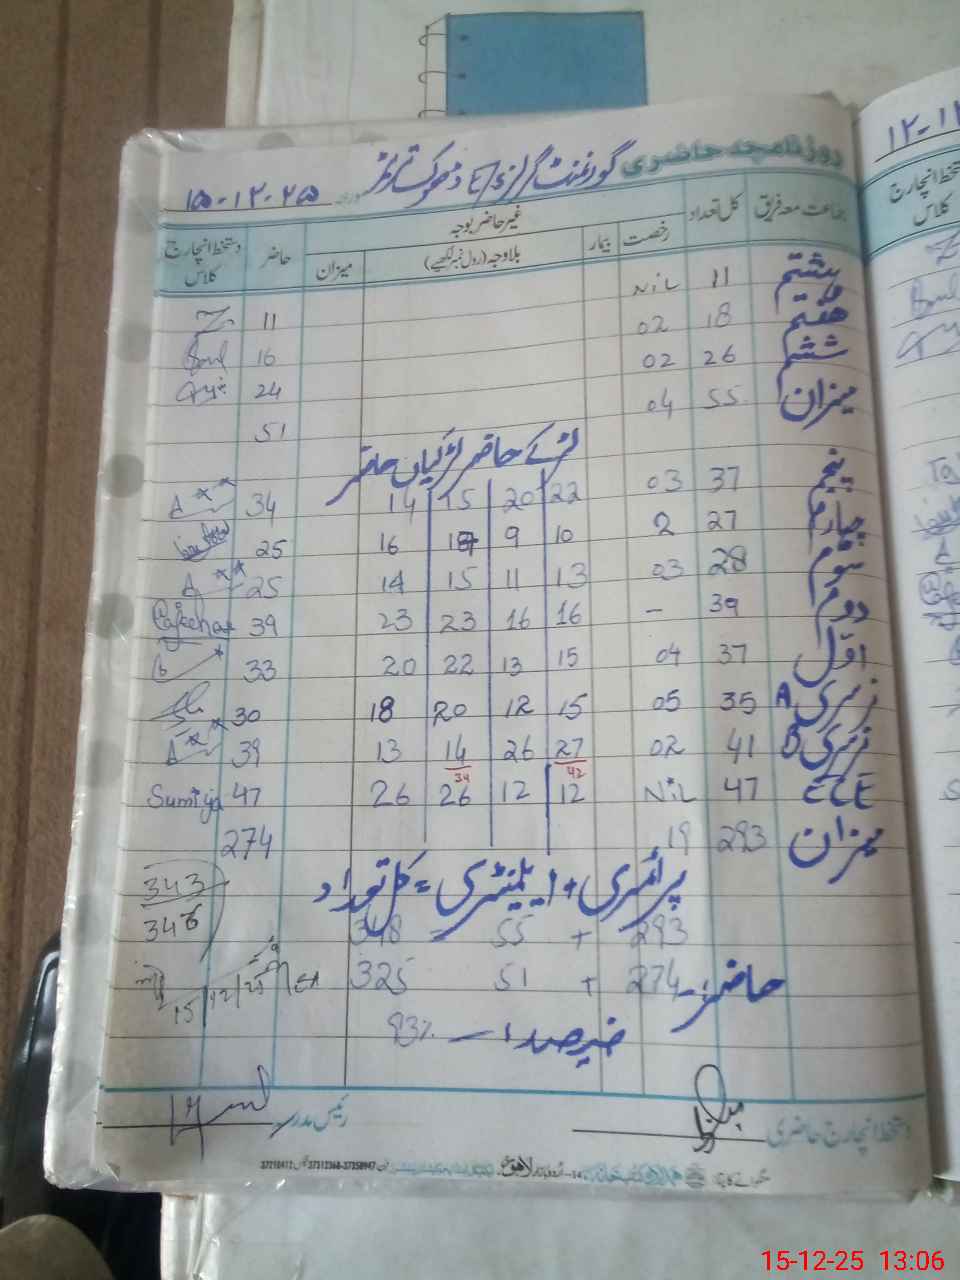 روزنامچہ حاضری گورنمنٹ گرلز E/S ڈھوک
۱۵-۱۲-۲۵
۱۲-۱۲
جماعت معہ فریق کل تعداد غیر حاضر بوجہ حاضر دستخط انچارج کلاس
رخصت بیمار بلا وجہ (رول نمبر لکھیے) میزان
دستخط انچارج کلاس
ہشتم 11 Nil 11
ہفتم 18 02 16
ششم 26 02 24
میزان 55 04 51
لڑکے حاضر لڑکیاں حاضر
پنجم 37 03 22 20 15 14 34
چہارم 27 2 10 9 17 16 25
سوم 28 03 13 11 15 14 25
دوم 39 - 16 16 23 23 39
اوّل 37 04 15 13 22 20 33
نرسری A 35 05 15 12 20 18 30
نرسری B 41 02 27 26 14 13 39
42 34
ECE 47 Nil 12 12 26 26 47 Sumiya
میزان 293 19 274
پرائمری + ایلیمنٹری = کل تعداد
343
346
293 + 55 = 348
حاضر :- 274 + 51 325
فیصد :- 93%
15/12/25
دستخط انچارج حاضری رئیس مدرسہ
لاہور
37210412 37312368-37358947
15-12-25 13:06